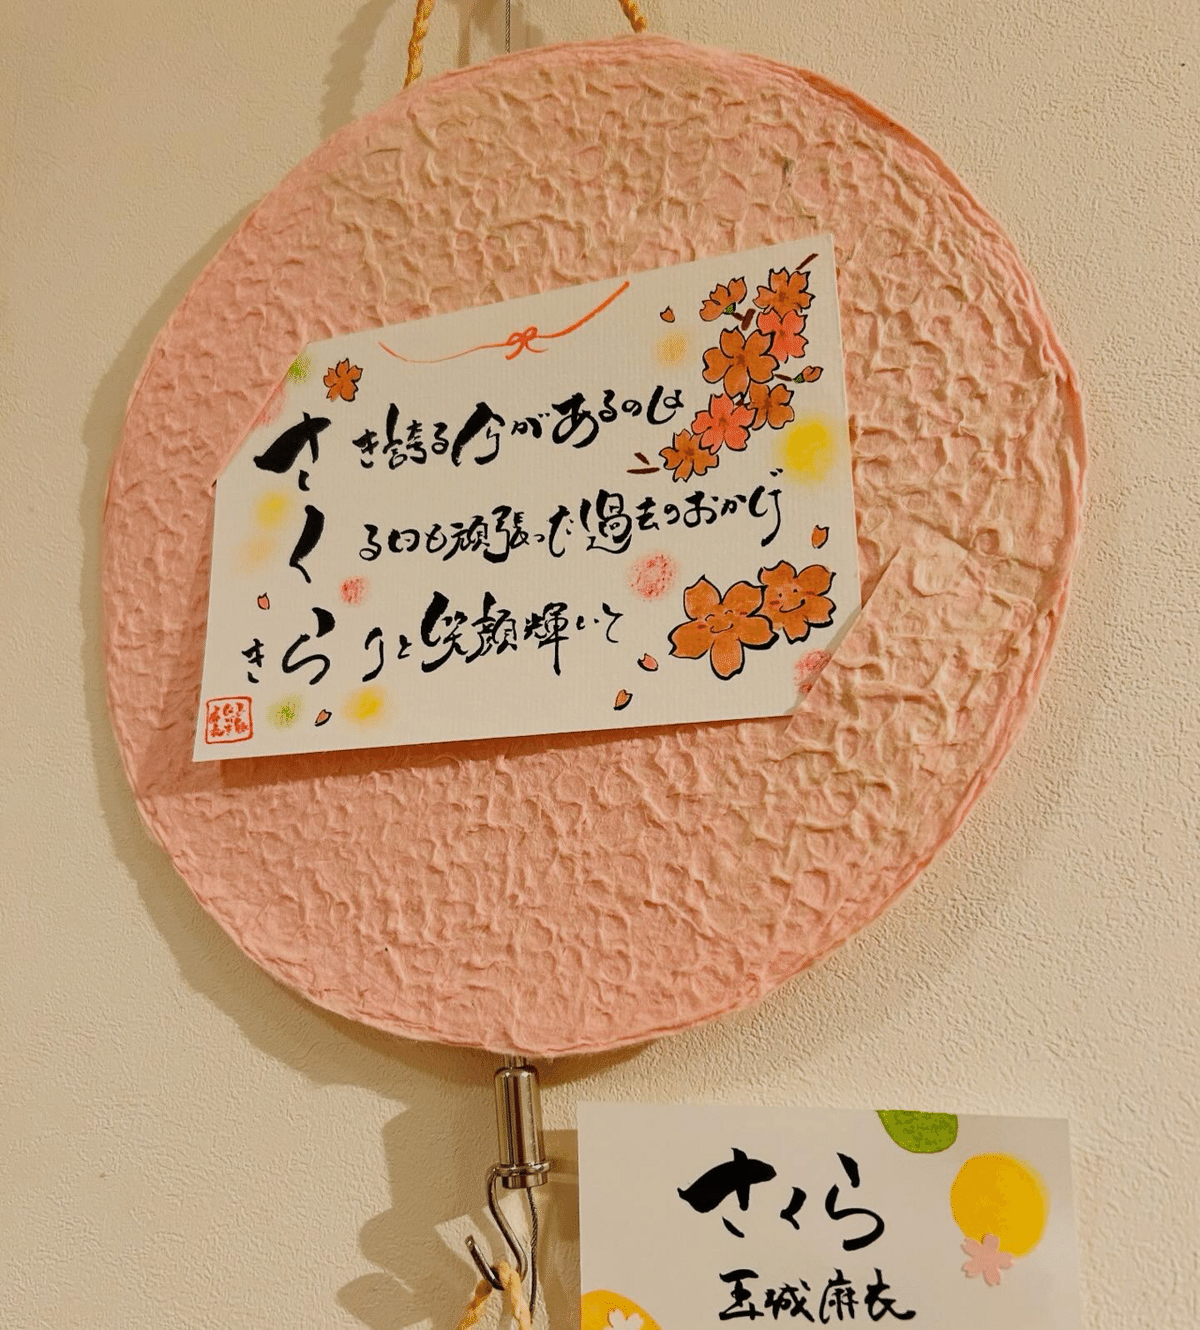 さき誇る今があるのは
くる日も頑張った過去のおかげ
きらりと笑顔輝いて
さくら
玉城麻衣